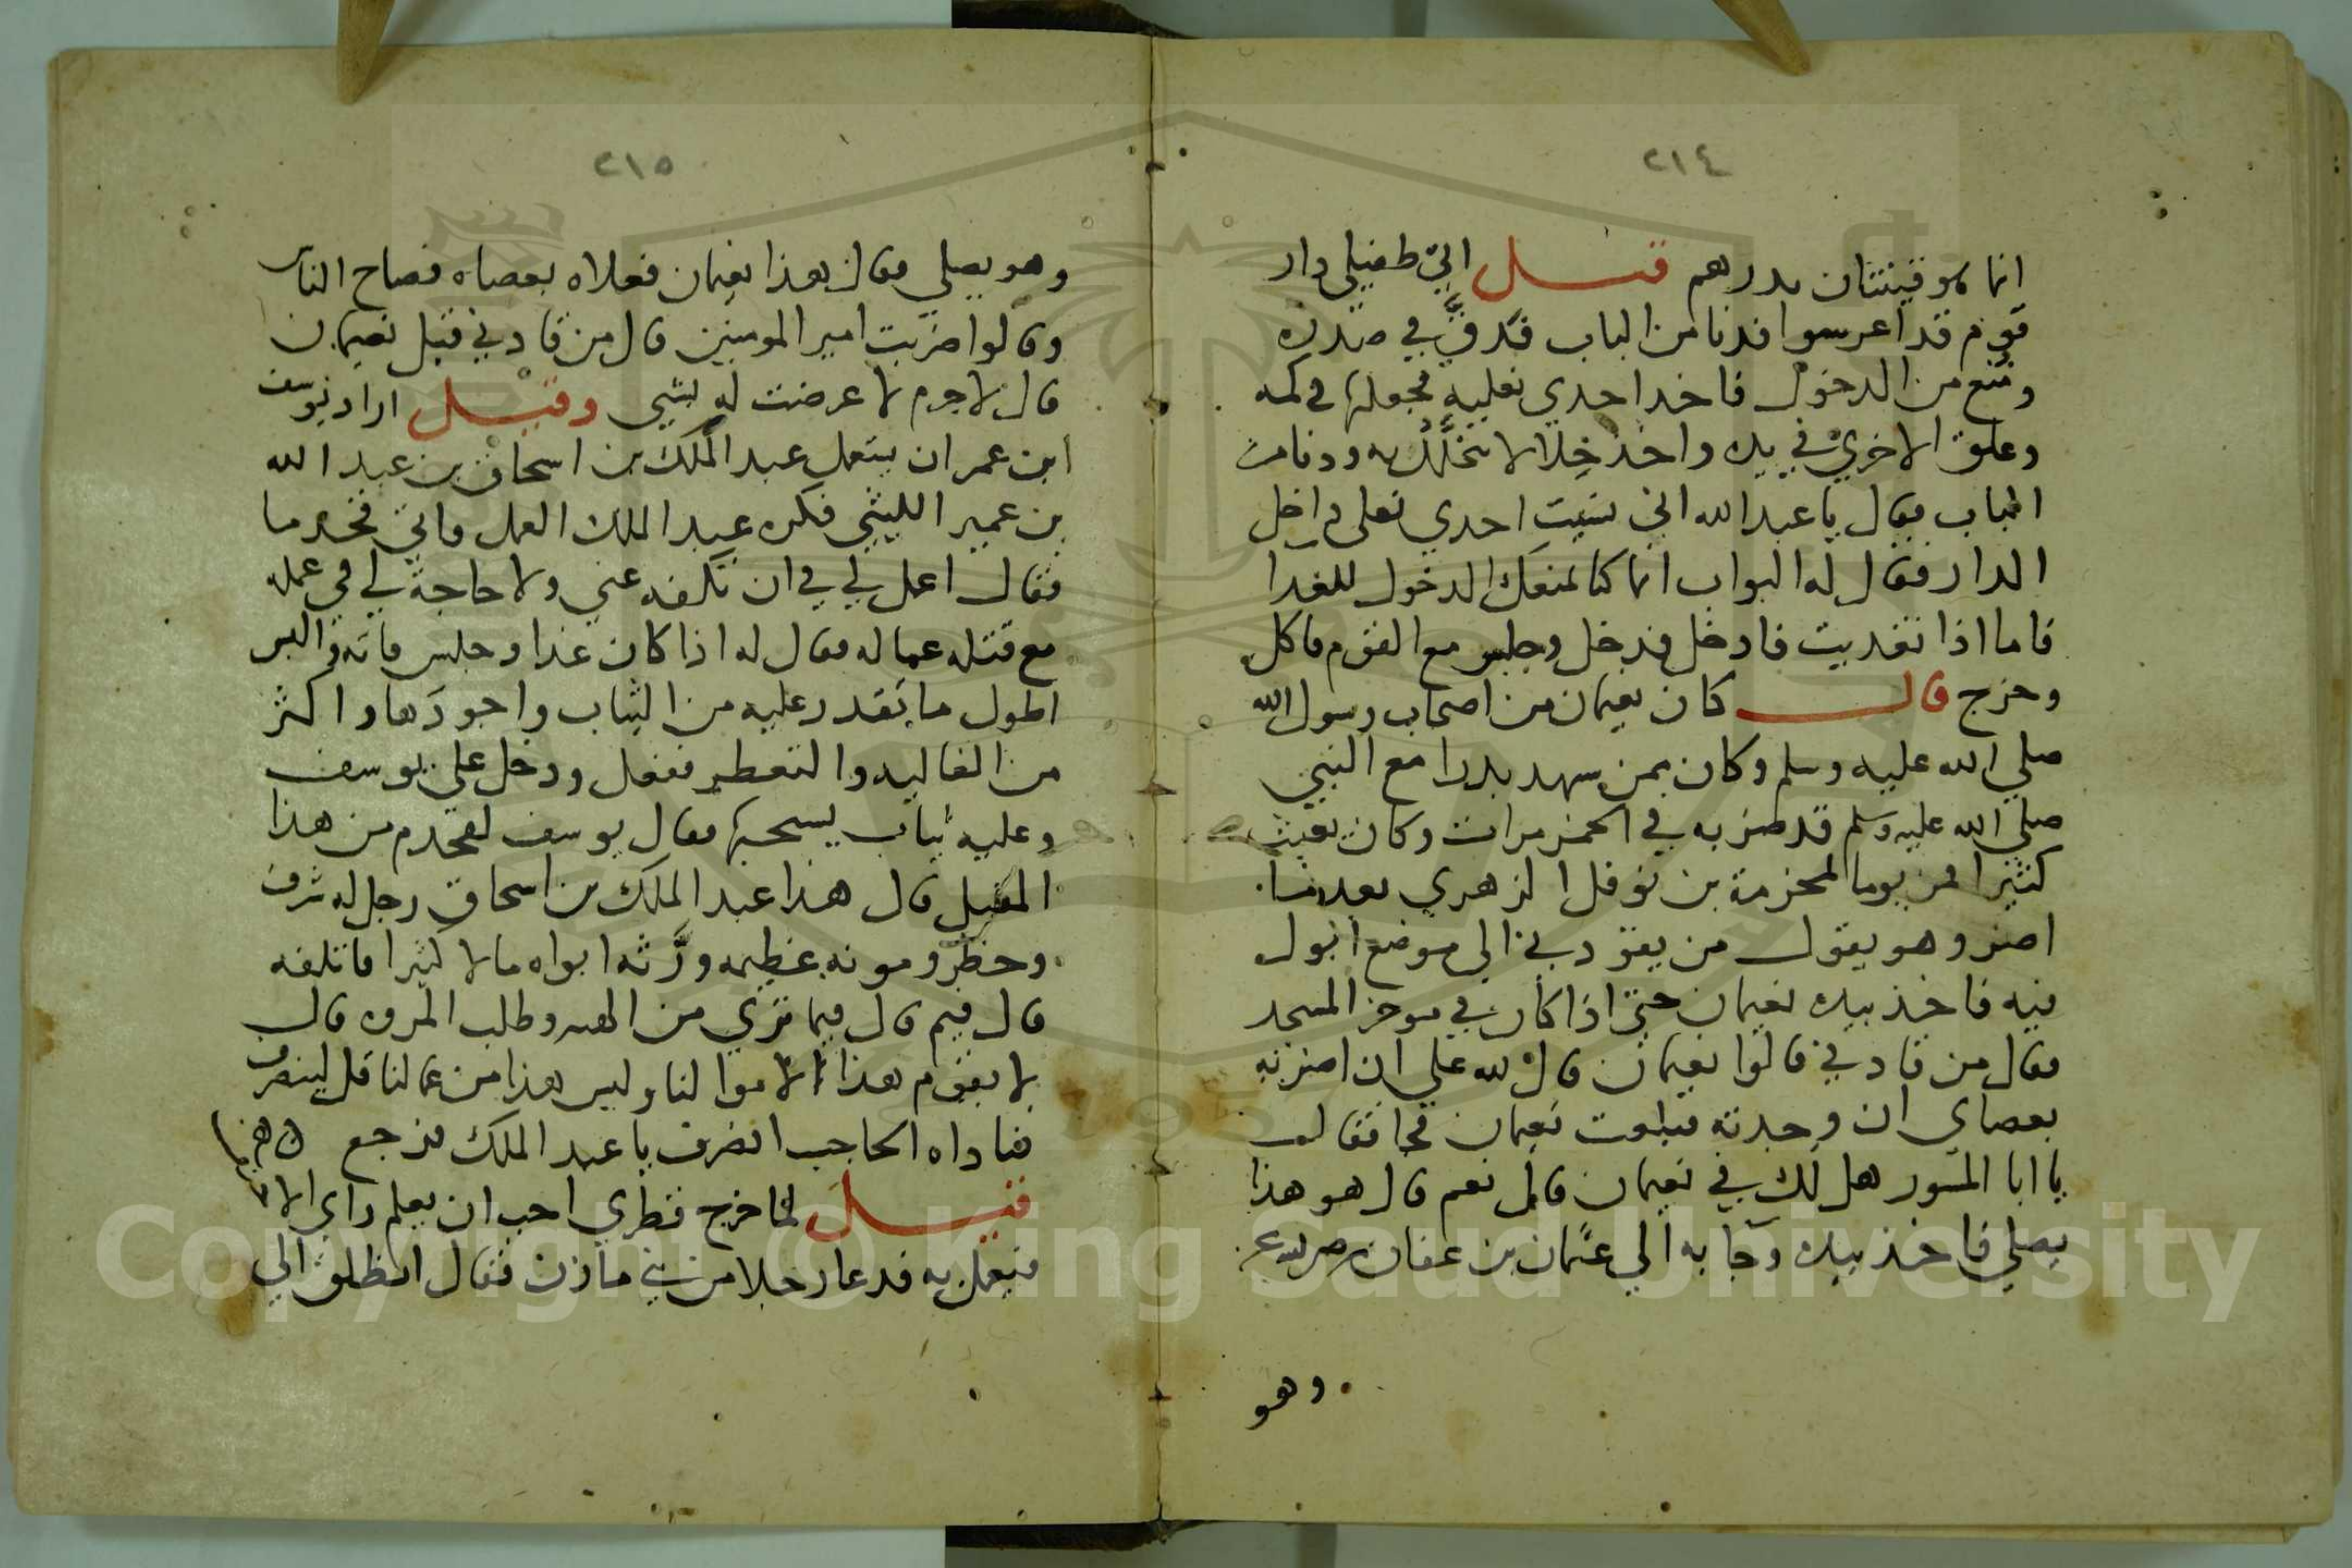 ٢١٤
انما هو قينتان بدرهم قيل اتي طفيلي دار
قوم قد اعرسوا فدنا من الباب فدق في صدره
ومنع من الدخول فاخد احدي نعليه فجعلها في كمه
وعلق الاخري في يده واخذ خلالا يتخلل به ودنا من
الباب فقال يا عبد الله اني نسيت احدي نعلي داخل
الدار فقال له البواب انما كنا نمنعك الدخول للغدا
فاما اذا تغديت فادخل فدخل وجلس مع القوم فاكل
وخرج قال كان نعيمان من اصحاب رسول الله
صلي الله عليه وسلم وكان ممن شهد بدرا مع النبي
صلي الله عليه وسلم قد ضربه في الخمر مرات وكان يعبث
كثيرا فمر يوما لمخرمة بن نوفل الزهري بعدما
اضر وهو يقول من يقودني الي موضع ابول
فيه فاخذ بيده نعيمان حتي اذا كان في موخر المسجد
فقال من قادني قالوا نعيمان قال لله علي ان اضربه
بعصاي ان وجدته فبلغت نعيمان فجا فقال
يا ابا المسور هل لك في نعيمان قال نعم قال هو هذا
يصلي فاخذ بيده وجا به الي عثمان بن عفان
وهو
٢١٥
وهو يصلي فقال هذا نعيمان فعلاه بعصاه فصاح الناس
وقالوا ضربت امير المومنين قال من قادني قيل نعيمان
قال لا جرم لا عرضت له لشي وقيل اراد يوسف
ابن عمر ان يستعمل عبد الملك بن اسحاق بن عبد الله
بن عمير الليثي فكره عبد الملك العمل واتي قحدما
فقال اعمل لي في ان تكفه عني ولا حاجة لي في عمله
مع قتله عماله فقال له اذا كان غدا وجلس فاته والبس
اطول ما تقدر عليه من الثياب واجودها واكثر
من الغاليه والتعطر ففعل ودخل علي يوسف
وعليه ثياب يسحبها فقال يوسف لقحدم من هذا
المقبل قال هذا عبد الملك بن اسحاق رجل له شرف
وحظر ومونه عظيمه ورثه ابواه مالا كثيرا فاتلفه
قال فيم قال فيما تري من الهيه وطلب المروه قال
لا يقوم هذا الاموالنا وليس هذا من عمالنا قل لينصرف
فناداه الحاجب انصرف يا عبد الملك فرجع
قيل لما خرج قطري احب ان يعلم راي
فيعمل به فدعا رجلا من بني مازن فقال انطلق الي